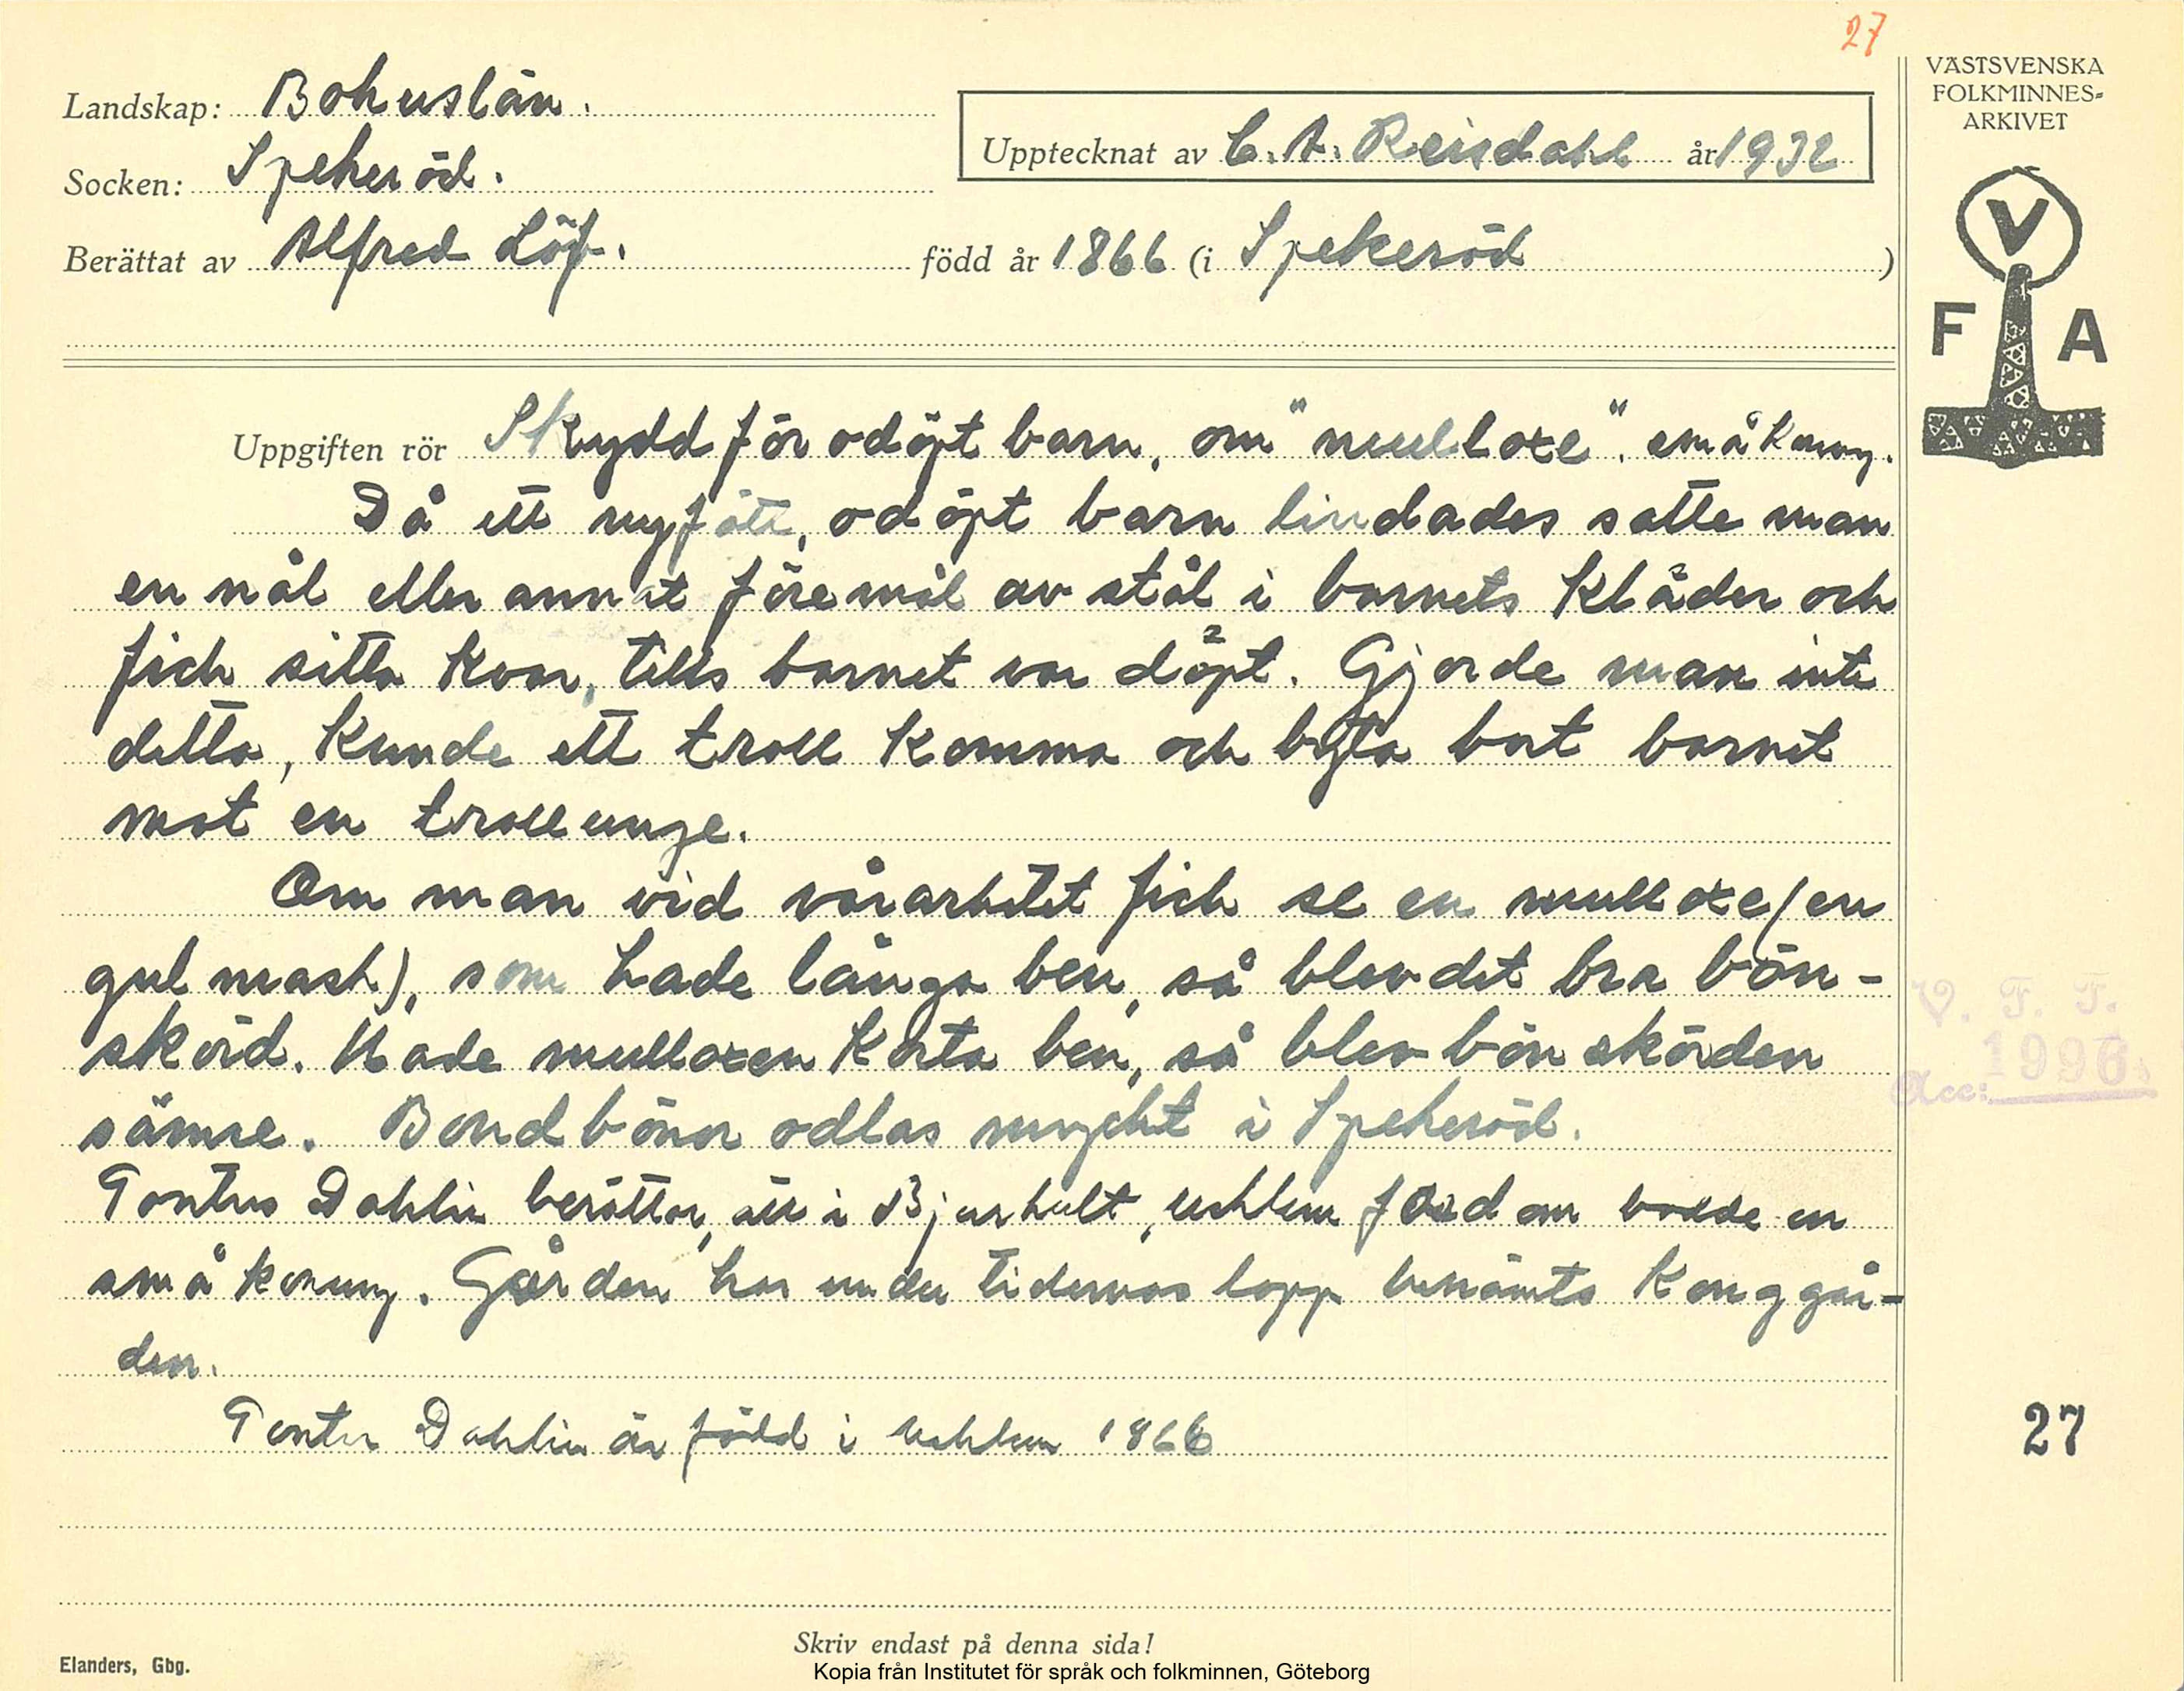 27
VÄSTSVENSKA
FOLKMINNES=
ARKIVET
Landskap: Bohuslän.
Upptecknat av C. A. Reisdahl år 1932
Socken: Spekeröd.
Berättat av Alfred Löf. född år 1866 (i Spekeröd )
V
F A
Uppgiften rör Skydd för odöpt barn, om "mulloxe". småkonung.
Då ett nyfött, odöpt barn lindades satte man
en nål eller annat föremål av stål i barnets kläder och
fick sitta kvar, tills barnet var döpt. Gjorde man inte
detta, kunde ett troll komma och byta bort barnet
mot en trollunge.
Om man vid vårarbetet fick se en mulloxe (en
gul mask), som hade långa ben, så blev det bra bön-
skörd. Hade mulloxen korta ben, så blev bönskörden
sämre. Bondbönor odlas mycket i Spekeröd.
Pontus Dahlin berättar, att i Bjurhult, Ucklum fordom bodde en
småkonung. Gården har under tidernas lopp benämts Konggår-
den.
Pontus Dahlin är född i Ucklum 1866
V. F. F.
1996
Acc:
27
Skriv endast på denna sida!
Elanders, Gbg.
Kopia från Institutet för språk och folkminnen, Göteborg